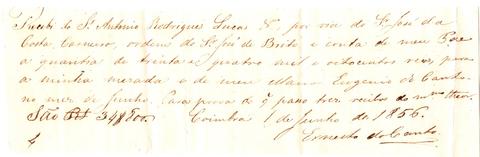 Recebi do Sr. Antonio Rodrigues Lucas por via do Sr. José da
Costa Carneiro, ordem do Sr. José de Brito e conta de meu Pae
a quantia de trinta e quatro mil e oitocentos reis, para
a minha mezada e de meu mano Eugenio do Canto
no mez de Junho. Para prova do q passo tres recibos do mmo theor.
São 34$800. Coimbra 1 de Junho de 1856.
Ernesto do Canto